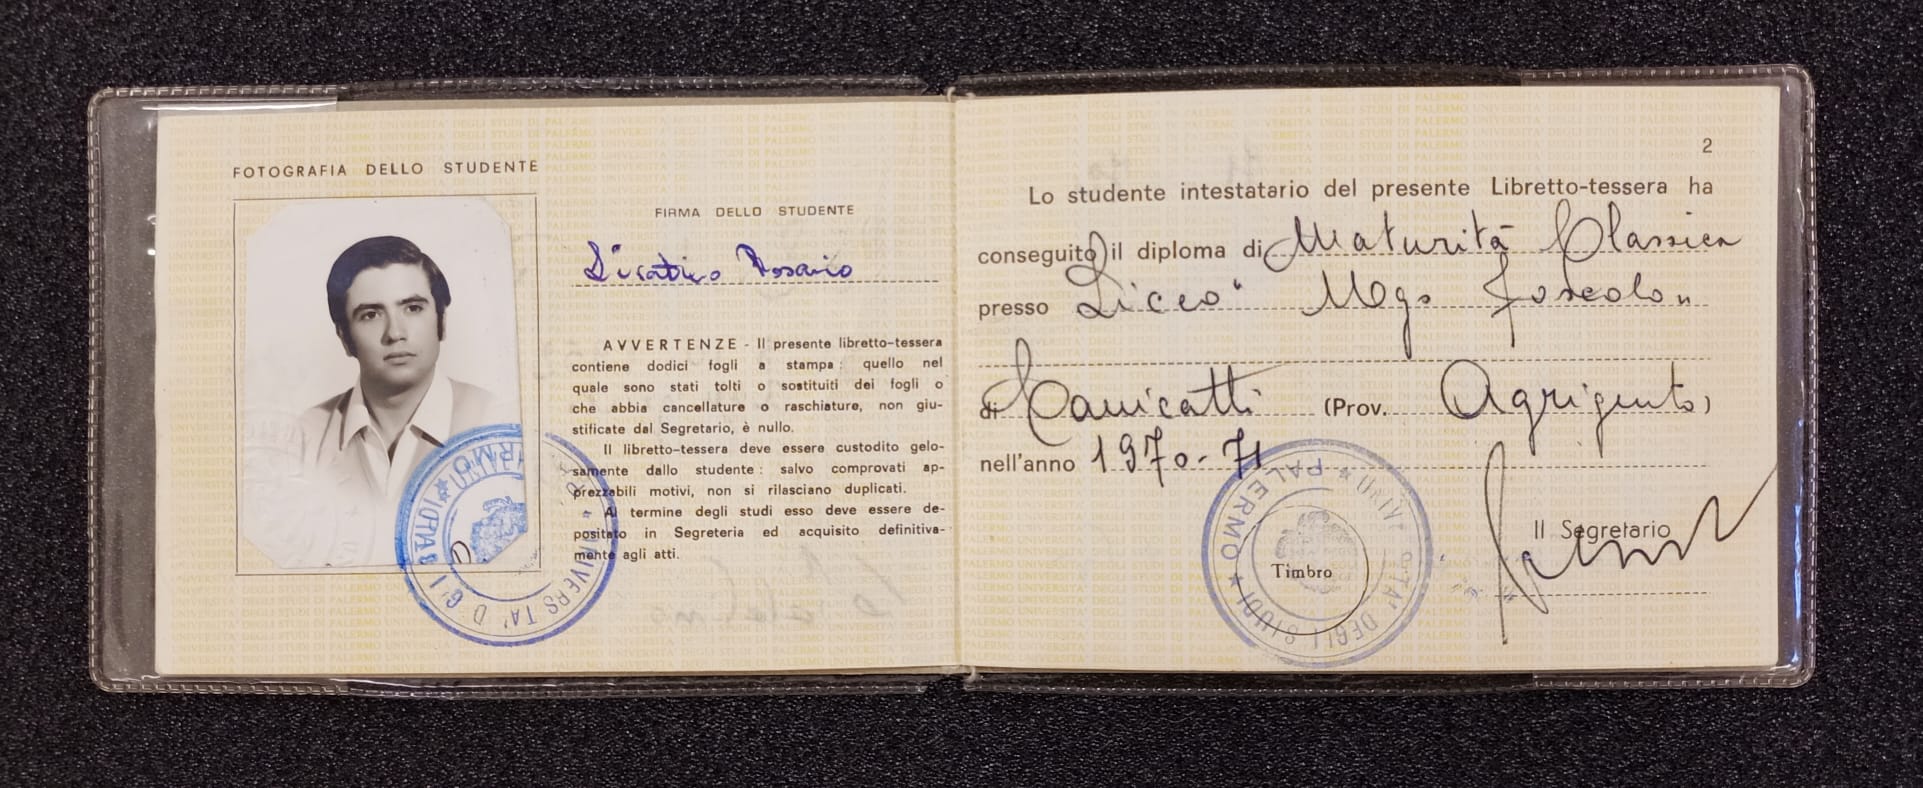 FOTOGRAFIA DELLO STUDENTE
FIRMA DELLO STUDENTE
Livatino Rosario
AVVERTENZE - Il presente libretto-tessera
contiene dodici fogli a stampa: quello nel
quale sono stati tolti o sostituiti dei fogli o
che abbia cancellature o raschiature, non giu-
stificate dal Segretario, è nullo.
Il libretto-tessera deve essere custodito gelo-
samente dallo studente: salvo comprovati ap-
prezzabili motivi, non si rilasciano duplicati.
Al termine degli studi esso deve essere de-
positato in Segreteria ed acquisito definitiva-
mente agli atti.
UNIVERSITA' DEGLI STUDI PALERMO
2
Lo studente intestatario del presente Libretto-tessera ha
conseguito il diploma di Maturità Classica
presso Liceo " Ugo Foscolo "
di Canicattì (Prov. Agrigento)
nell'anno 1970-71
Il Segretario
Timbro
UNIVERSITA' DEGLI STUDI PALERMO